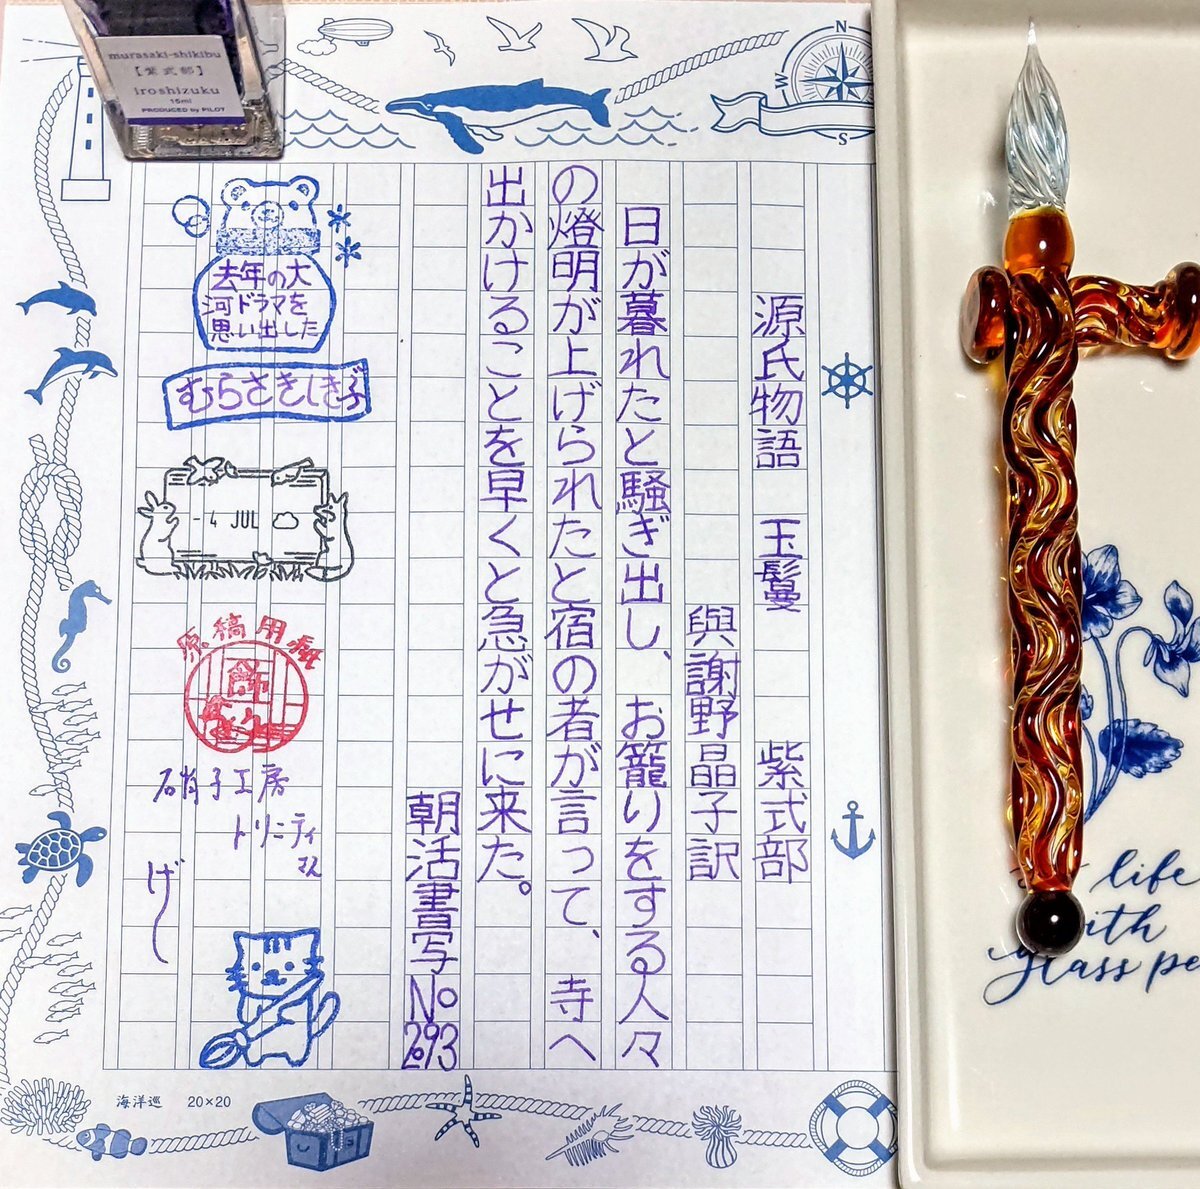 murasaki-shikibu
【紫式部】
iroshizuku
15ml
PRODUCED by PILOT
N
W
S
源氏物語 玉鬘 紫式部
與謝野晶子訳
日が暮れたと騒ぎ出し、お籠りをする人々
の燈明が上げられたと宿の者が言って、寺へ
出かけることを早くと急がせに来た。
朝活書写No293
去年の大
河ドラマを
思い出した
むらさきしきぶ
-4 JUL
原稿用紙
硝子工房
トリニティ
さん
げし
海洋巡 20×20
life
with
glass pe